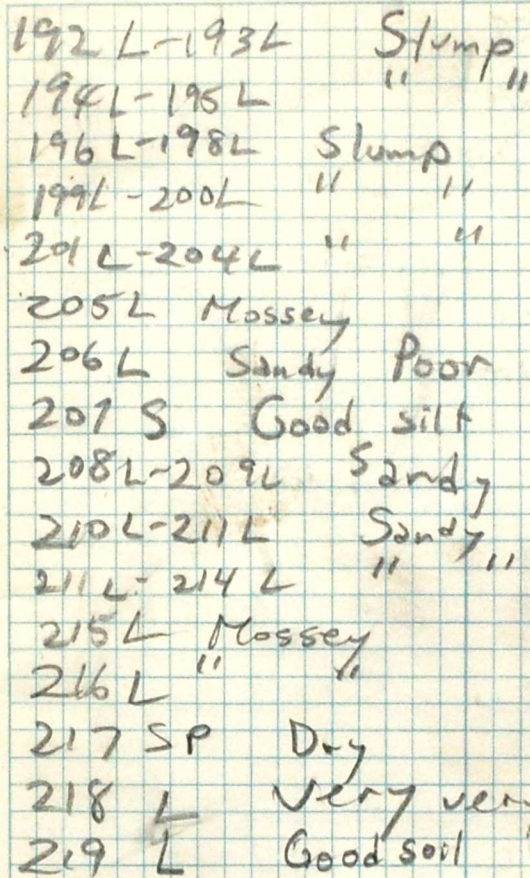 192 L-193L Slump
194L-195L " "
196L-198L Slump
199L-200L " "
201L-204L " "
205L Mossey
206L Sandy Poor
207 S Good silt
208L-209L Sandy
210L-211L Sandy
211L-214L " "
215L Mossey
216L " "
217 SP Dry
218 L Very ver
219 L Good soil